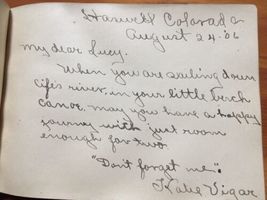 Haswell Colorado
August 24-'06
My dear Lucy.
When you are sailing down
life's river, in your little birch
canoe, may you have a happy
journey with just room
enough for two.
"Don't forget me".
Katie Vigar